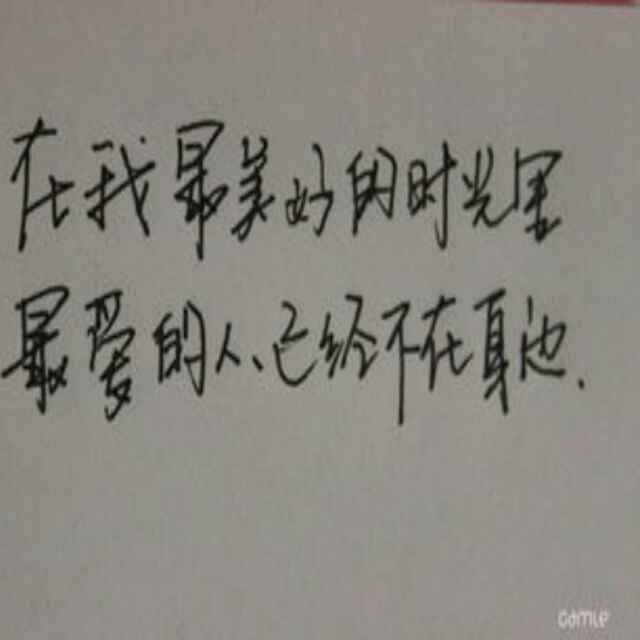 在我最美好的时光里
最爱的人、已经不在身边.
camle